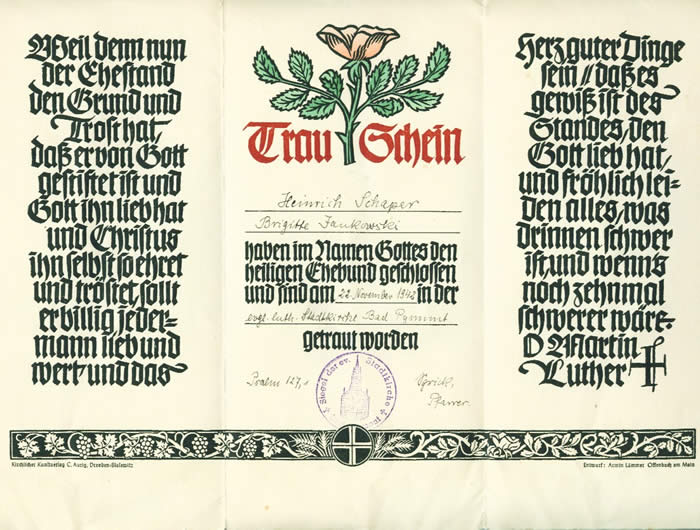 Weil denn nun
der Ehestand
den Grund und
Trost hat,
daß er von Gott
gestiftet ist und
Gott ihn lieb hat
und Christus
ihn selbst so ehret
und tröstet, sollt
er billig jeder-
mann lieb und
wert und das
Trau Schein
Heinrich Schaper
Brigitte Jankowski
haben im Namen Gottes den
heiligen Ehebund geschlossen
und sind am 22. November 1942 in der
evgl. luth. Stadtkirche Bad Pyrmont
getraut worden
Psalm 127,1
Siegel der ev. Stadtkirche
Pfarrer
Herz guter Dinge
sein // daß es
gewiß ist des
Standes, den
Gott lieb hat,
und fröhlich lei-
den alles, was
drinnen schwer
ist, und wenn's
noch zehnmal
schwerer wäre.
D Martin
Luther
Kirchlicher Kunstverlag C. Aurig, Dresden-Blasewitz
Entwurf: Armin Lämmer Offenbach am Main